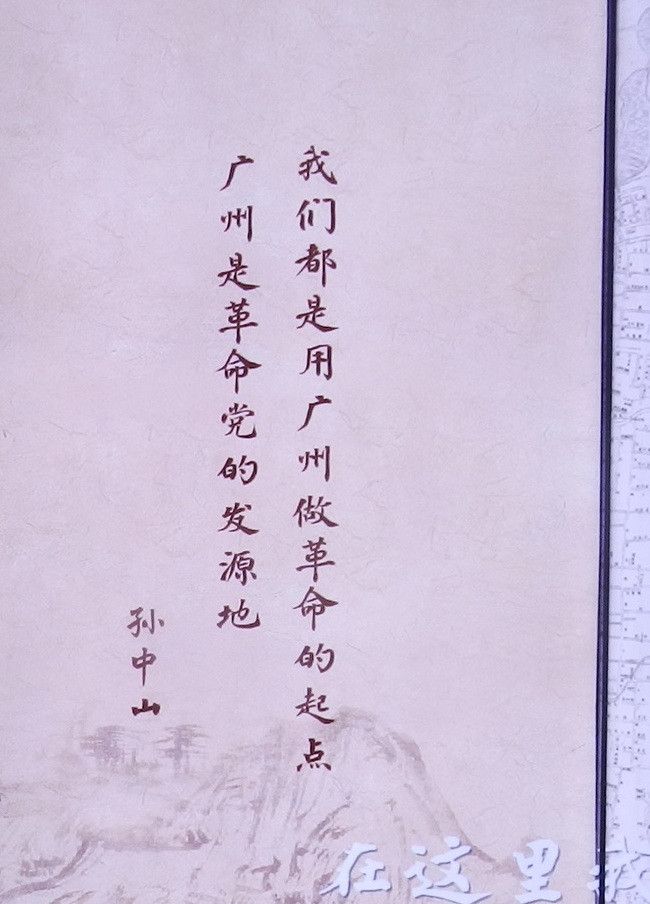 我们都是用广州做革命的起点
广州是革命党的发源地
孙中山
在这里